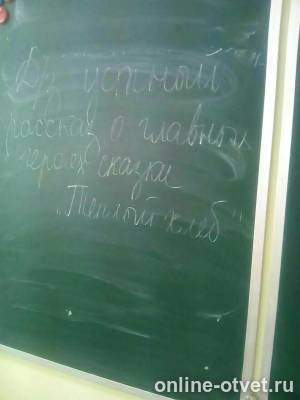 Д/з устный
рассказ о главных
героях сказки
"Теплый хлеб"
online-otvet.ru